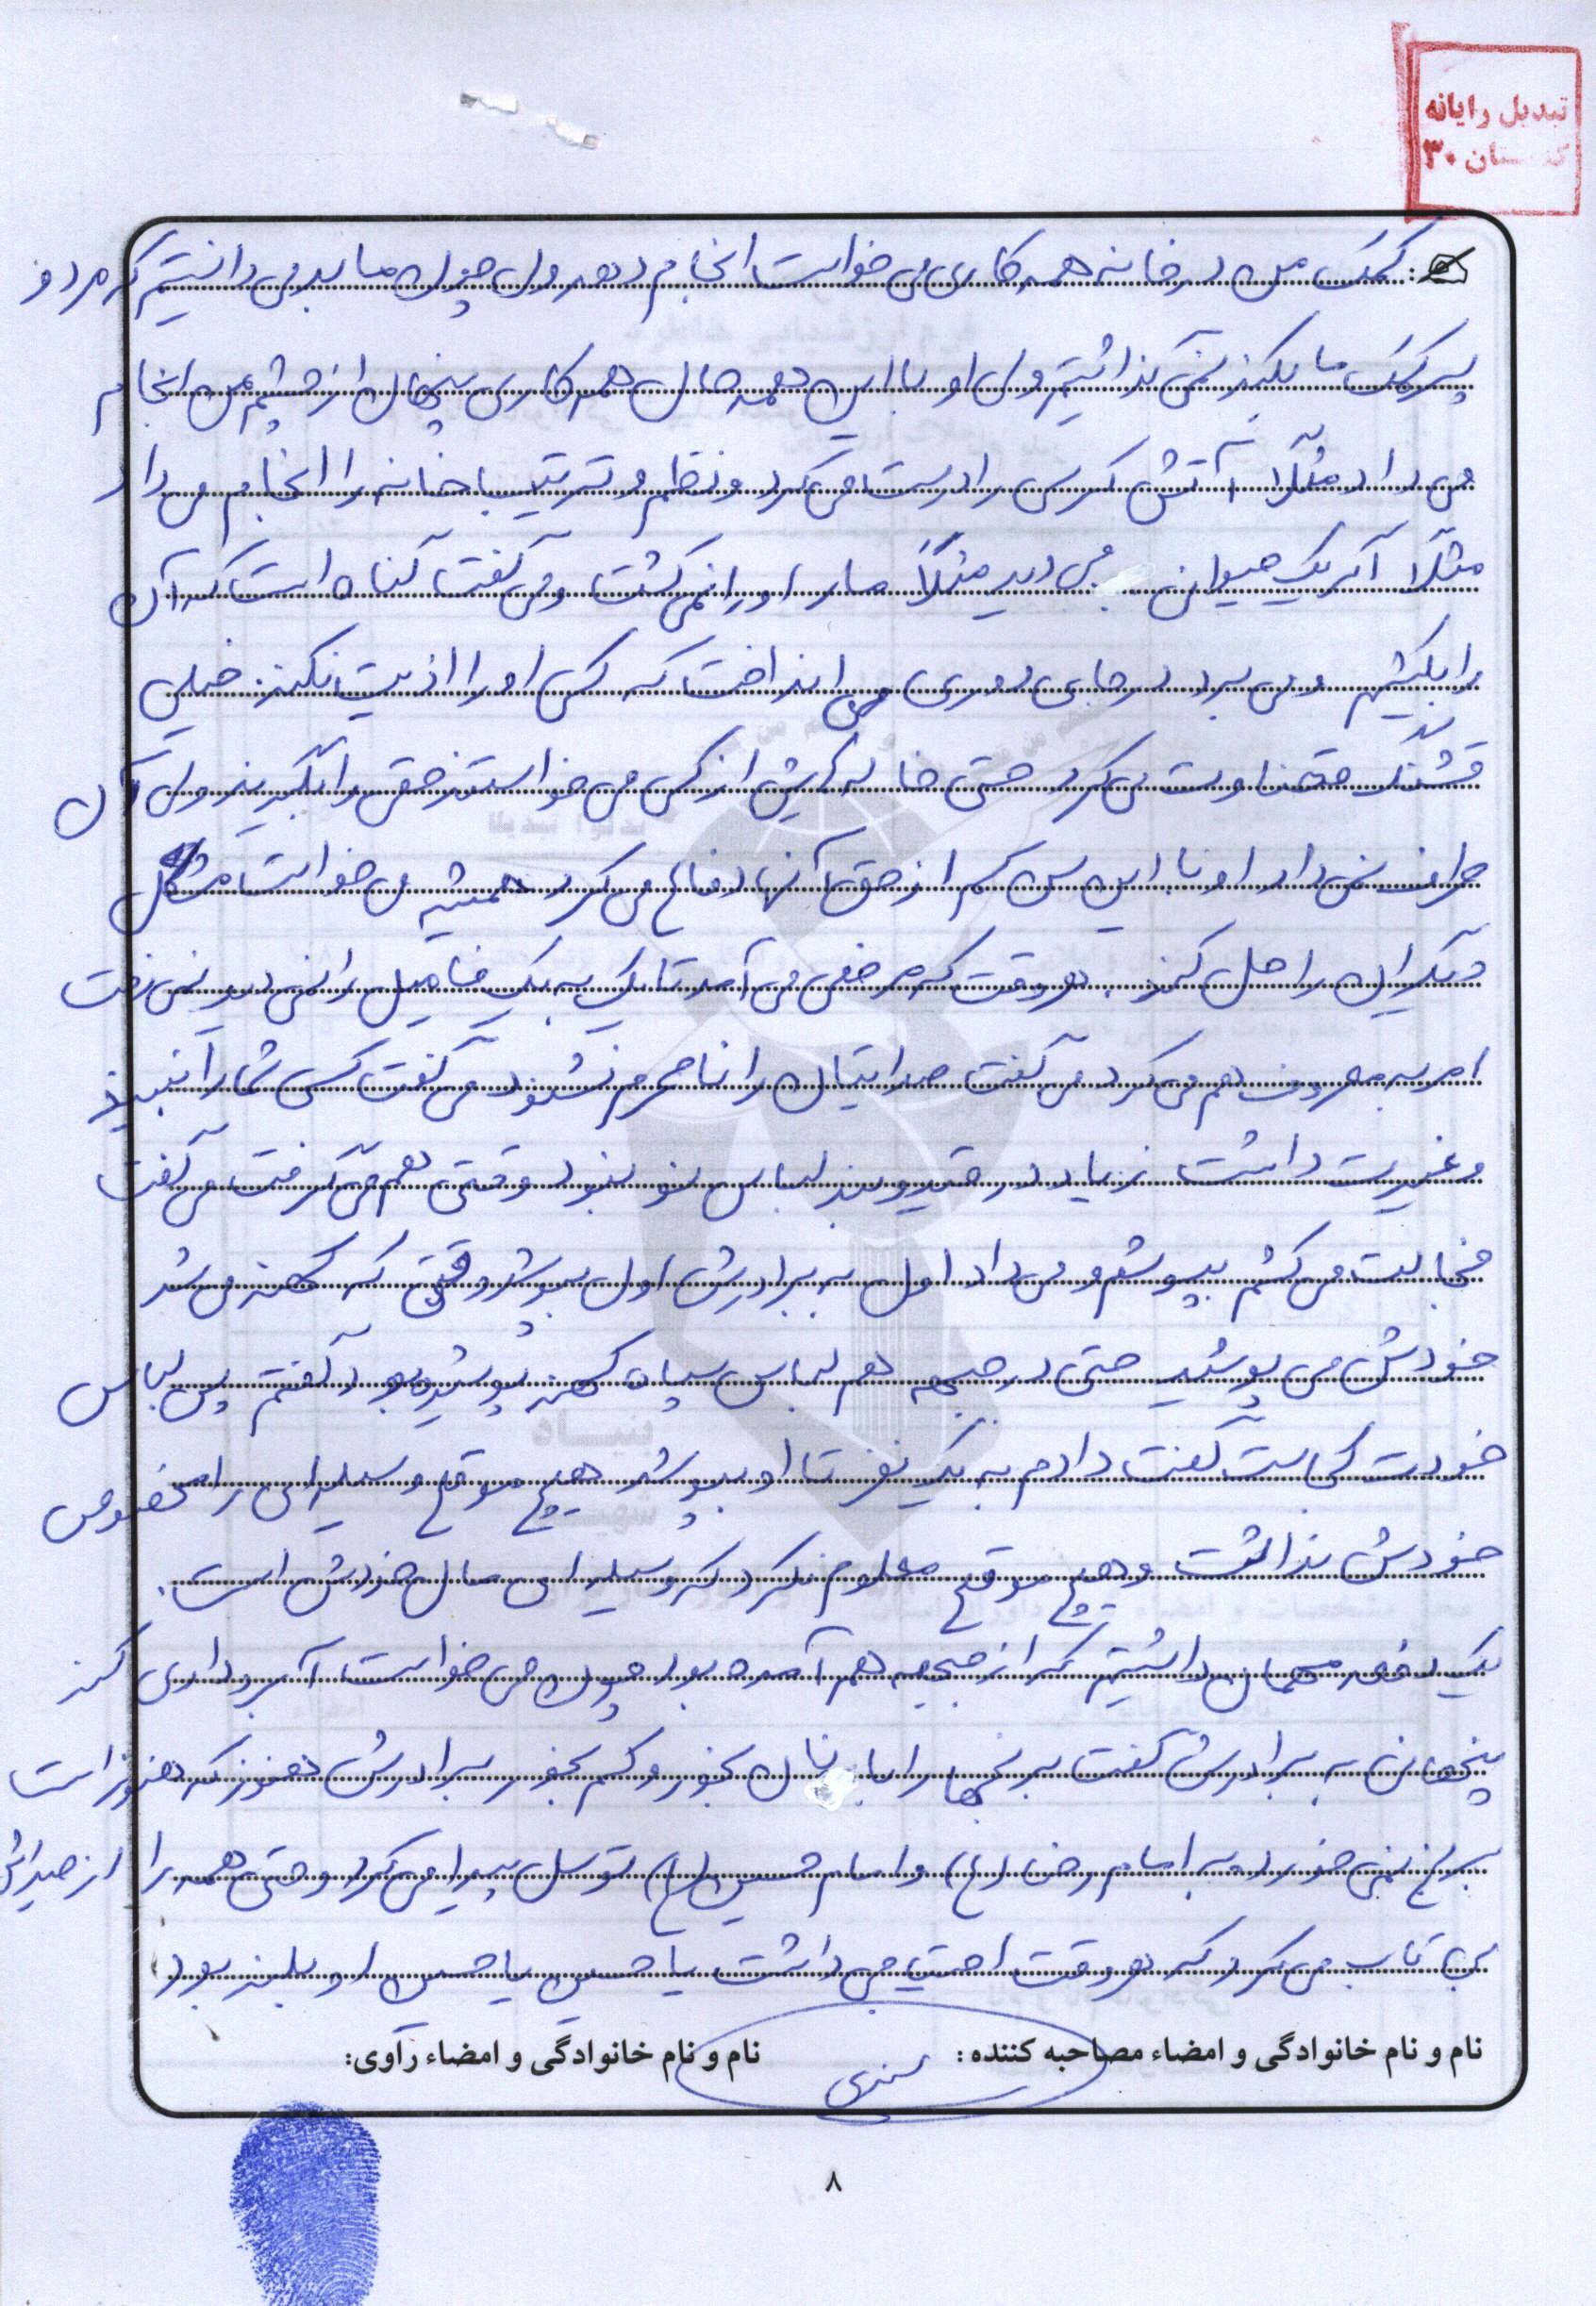 تبدیل رایانه
۳۰
کمک من در خانه همه کاری می خواست انجام دهد ولی چون ما بد می دانستیم که مرد و
پسر کمک ما بکند نمی گذاشتیم ولی او با این همه حال همه کاری پنهان از چشم من انجام
می داد مثلاً آتش کرسی را درست می کرد و نظم و ترتیب خانه را انجام می داد
مثلاً اگر یک حیوانی می دید مثلاً مار او را نمی کشت و می گفت گناه است که آن
را بکشیم و می برد در جای دوری می انداخت که کسی او را اذیت نکند. خیلی
قشنگ قضاوت می کرد حتی خاله هایش از کسی می خواستند حقی را بگیرند ولی آن
طرف نمی داد او با این سن کم از حق آنها دفاع می کرد همیشه می خواست مشکل
دیگران را حل کند. هر وقت که مرخصی می آمد تا یک به یک فامیل را نمی دید نمی رفت
امر به معروف هم می کرد می گفت صدایتان را نامحرم نشنود می گفت کسی شما را نبیند
و غیرت داشت زیاد در قید و بند لباس نو نبود وقتی هم می گرفت می گفت
خجالت می کشم بپوشم و می داد اول به برادرش اول بپوشد وقتی که کهنه می شد
خودش می پوشید حتی در جبهه هم لباس سپاه کهنه پوشیده بود گفتم پس لباس
خودت کجاست گفت دادم به یک نفر تا او بپوشد هیچ موقع وسیله ای را مخصوص
خودش نذاشت و هیچ موقع معلوم نکرد که وسیله ای مال خودش است.
یک دفعه مهمان داشتیم که از جبهه هم آمده بود چون می خواست آبروداری کند
پنهانی به برادرش گفت برنجها را با نان بخور و کم بخور برادرش هنوز که هنوز است
برنج نمی خورد و به امام رضا (ع) و امام حسین (ع) توسل پیدا می کرد و حتی همه را از صدایش
بی تاب می کرد که هر وقت احتیاجی داشت یا حسین یا حسین او بلند بود
نام و نام خانوادگی و امضاء مصاحبه کننده:
نام و نام خانوادگی و امضاء راوی:
۸